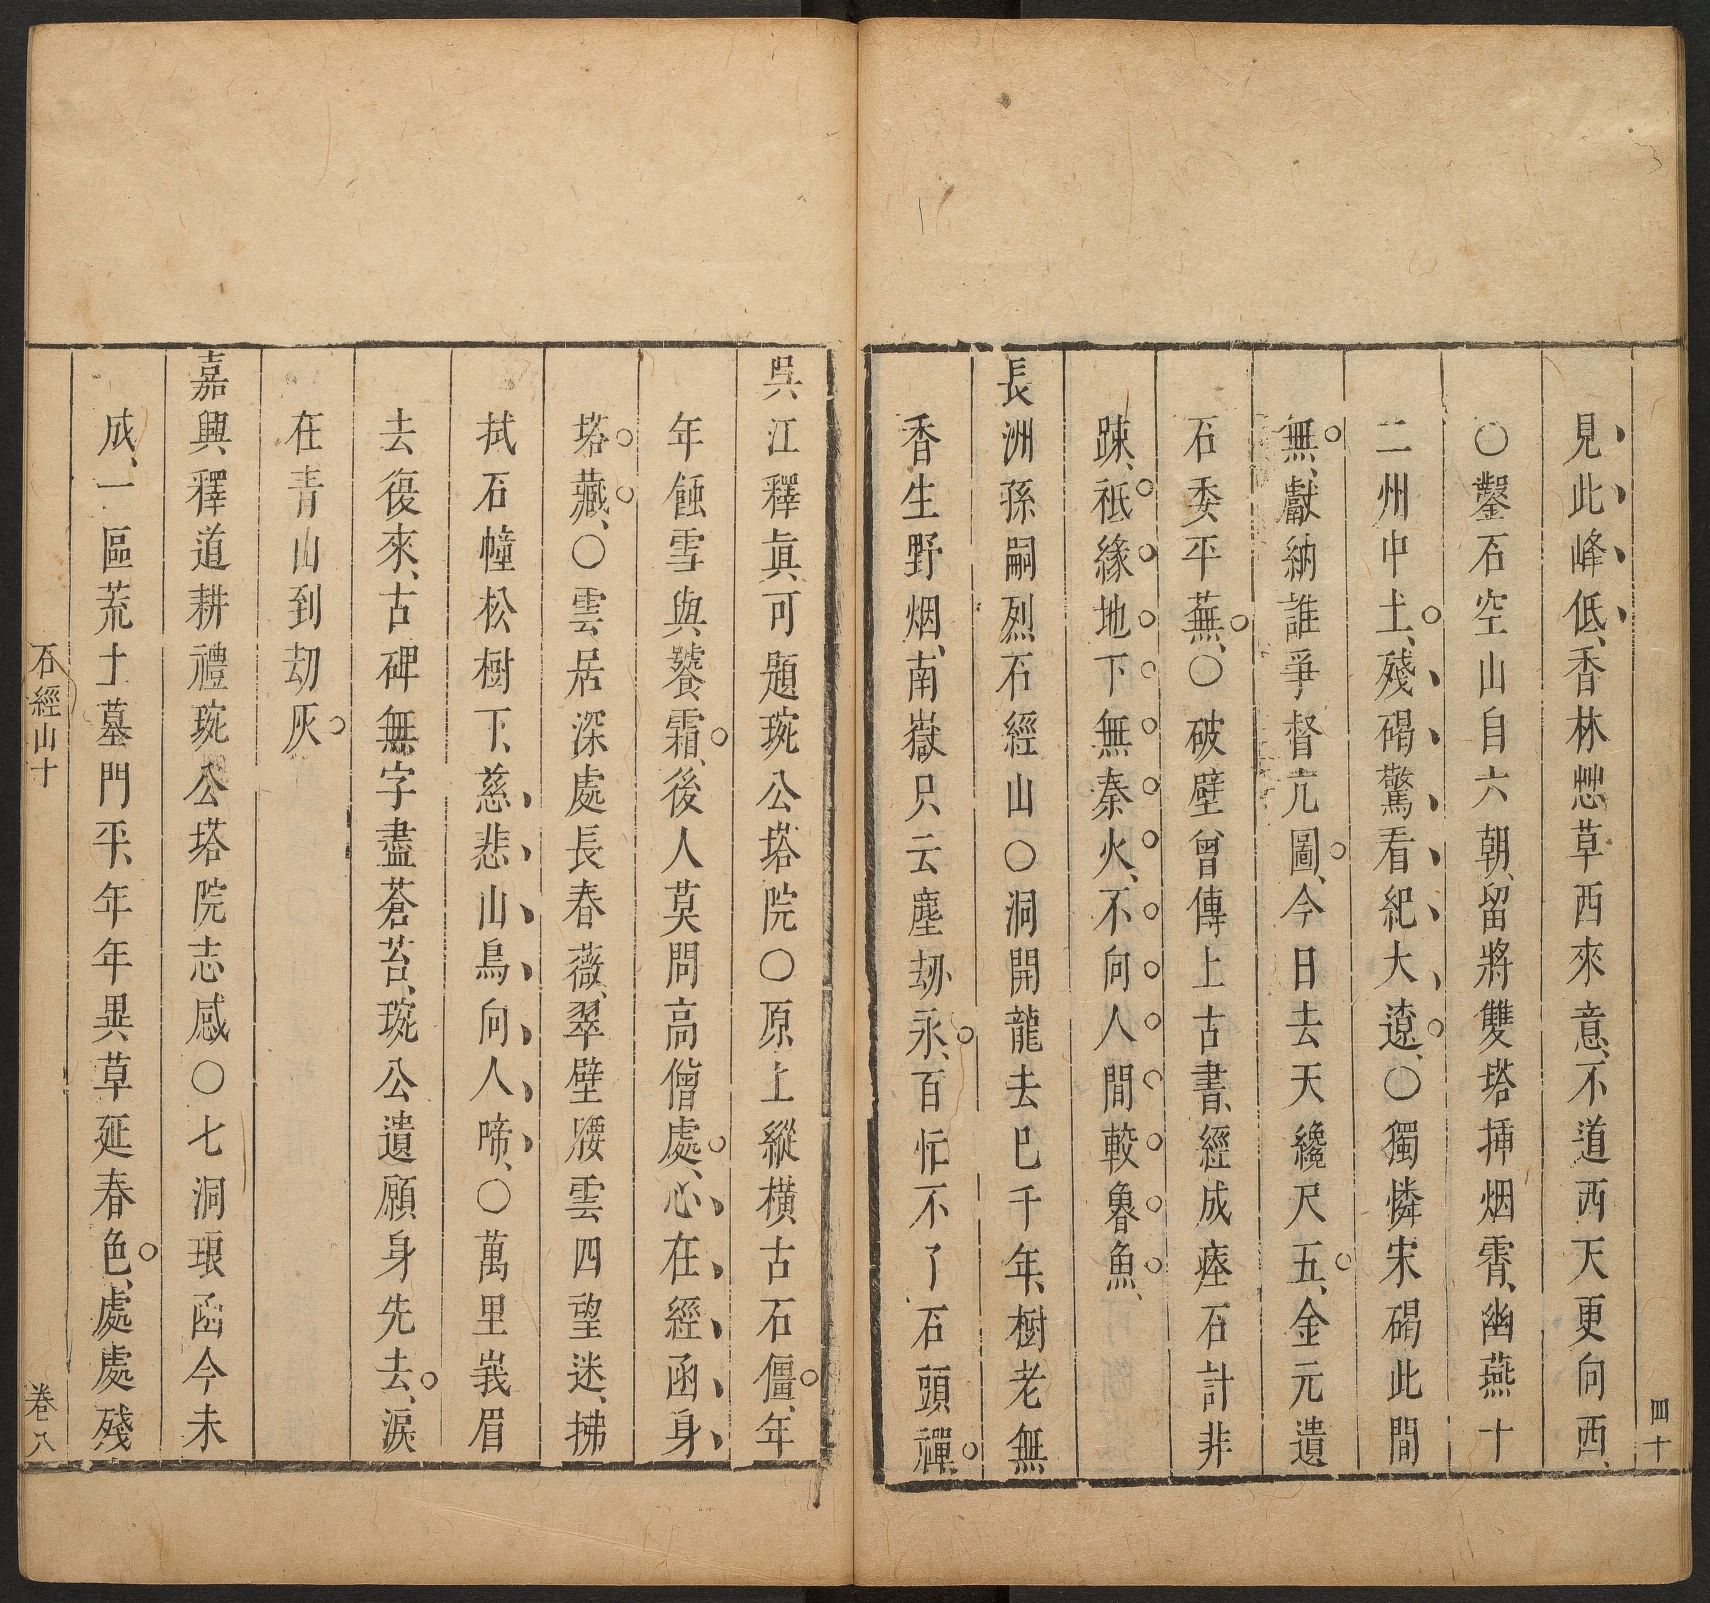 四十
見此峰低、香林愁草西來意、不道西天更向西、
○鑿石空山自六朝、留將雙塔揷烟霄、幽燕十
二州中土、殘碣驚看紀大遼、○獨憐宋碣此間
無、獻納誰爭督亢圖、今日去天纔尺五、金元遺
石委平蕪、○破壁曾傳上古書、經成瘞石計非
踈、秪緣地下無秦火、不向人間較魯魚、
長洲孫嗣烈石經山○洞開龍去巳千年、樹老無
香生野烟、南嶽只云塵劫永、百忙不了石頭禪、
吳江釋眞可題琬公塔院○原上縱橫古石僵、年
年蝕雪與饕霜、後人莫問高僧處、心在經函身
塔藏、○雲居深處長春薇、翠壁腰雲四望迷、拂
拭石幢松樹下、慈悲山鳥向人啼、○萬里峩眉
去復來、古碑無字盡蒼苔、琬公遺願身先去、淚
在青山到刧灰
嘉興釋道耕禮琬公塔院志感○七洞琅函今未
成、一區荒土墓門平、年年異草延春色、處處殘
石經山十
卷八